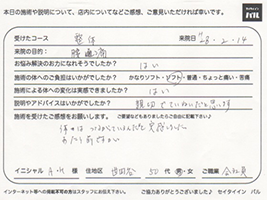 本日の施術や説明について、店内についてなどご感想、ご意見いただければ幸いです。
バル
受けたコース 整体 来院日 H28.2.14
来院の目的: 腰痛
お悩み解決のお力になれそうでしたか? はい
施術の体へのご負担はいかがでしたか? かなりソフト・ソフト・普通・ちょっと痛い・苦痛
施術による体への変化は実感できましたか? はい
説明やアドバイスはいかがでしたか? 親切でていねいだと思います
受けた施術のご感想をお願いします。
体は つながっているんだなと実感しました
イニシャル 住地区 世田谷 50代 男・女 ご職業 会社員
インターネット等への掲載不可の方はスタッフにお伝え下さい。 ご協力ありがとうございました♪ セイタイイン バル